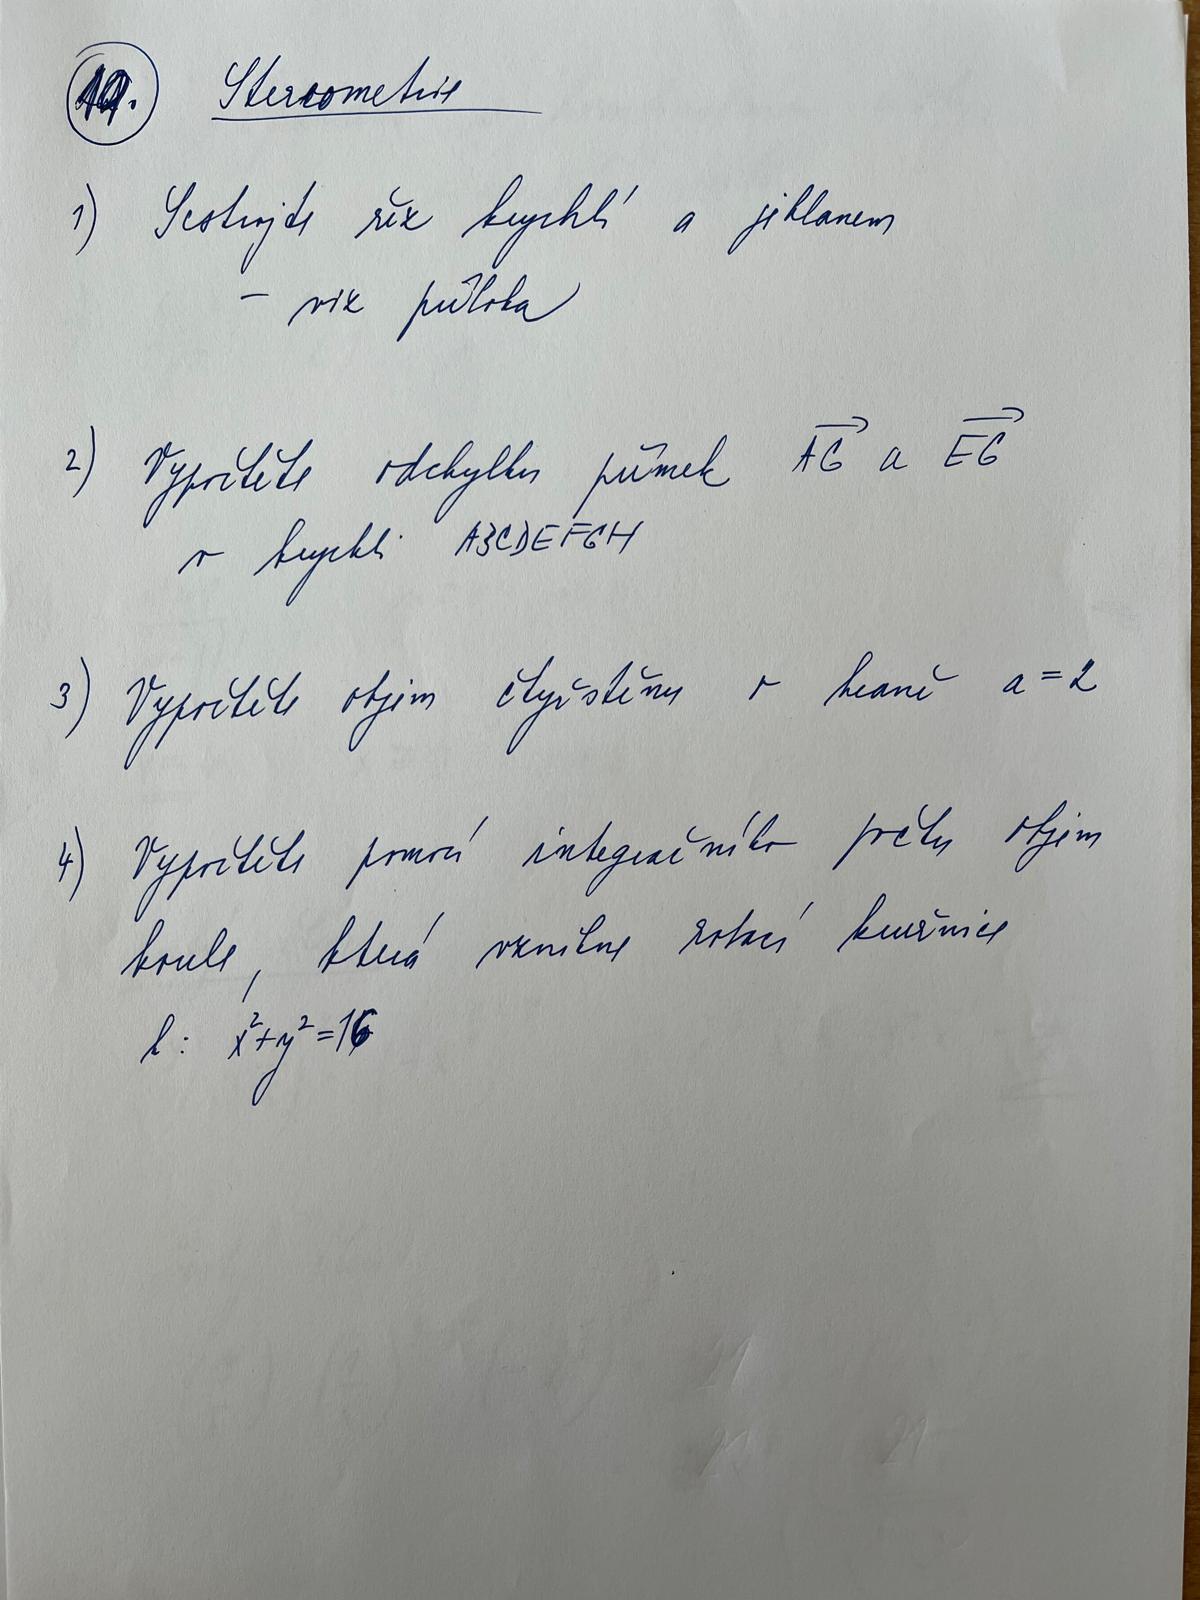 19. Stereometrie
1) Sestrojte řez krychlí a jehlanem
- viz příloha
2) Vypočtěte odchylku přímek AG a EG
v krychli ABCDEFGH
3) Vypočtěte objem čtyřstěnu o hraně a = 2
4) Vypočtěte pomocí integračního počtu objem
koule, která vznikne rotací kružnice
k: x²+y²=16